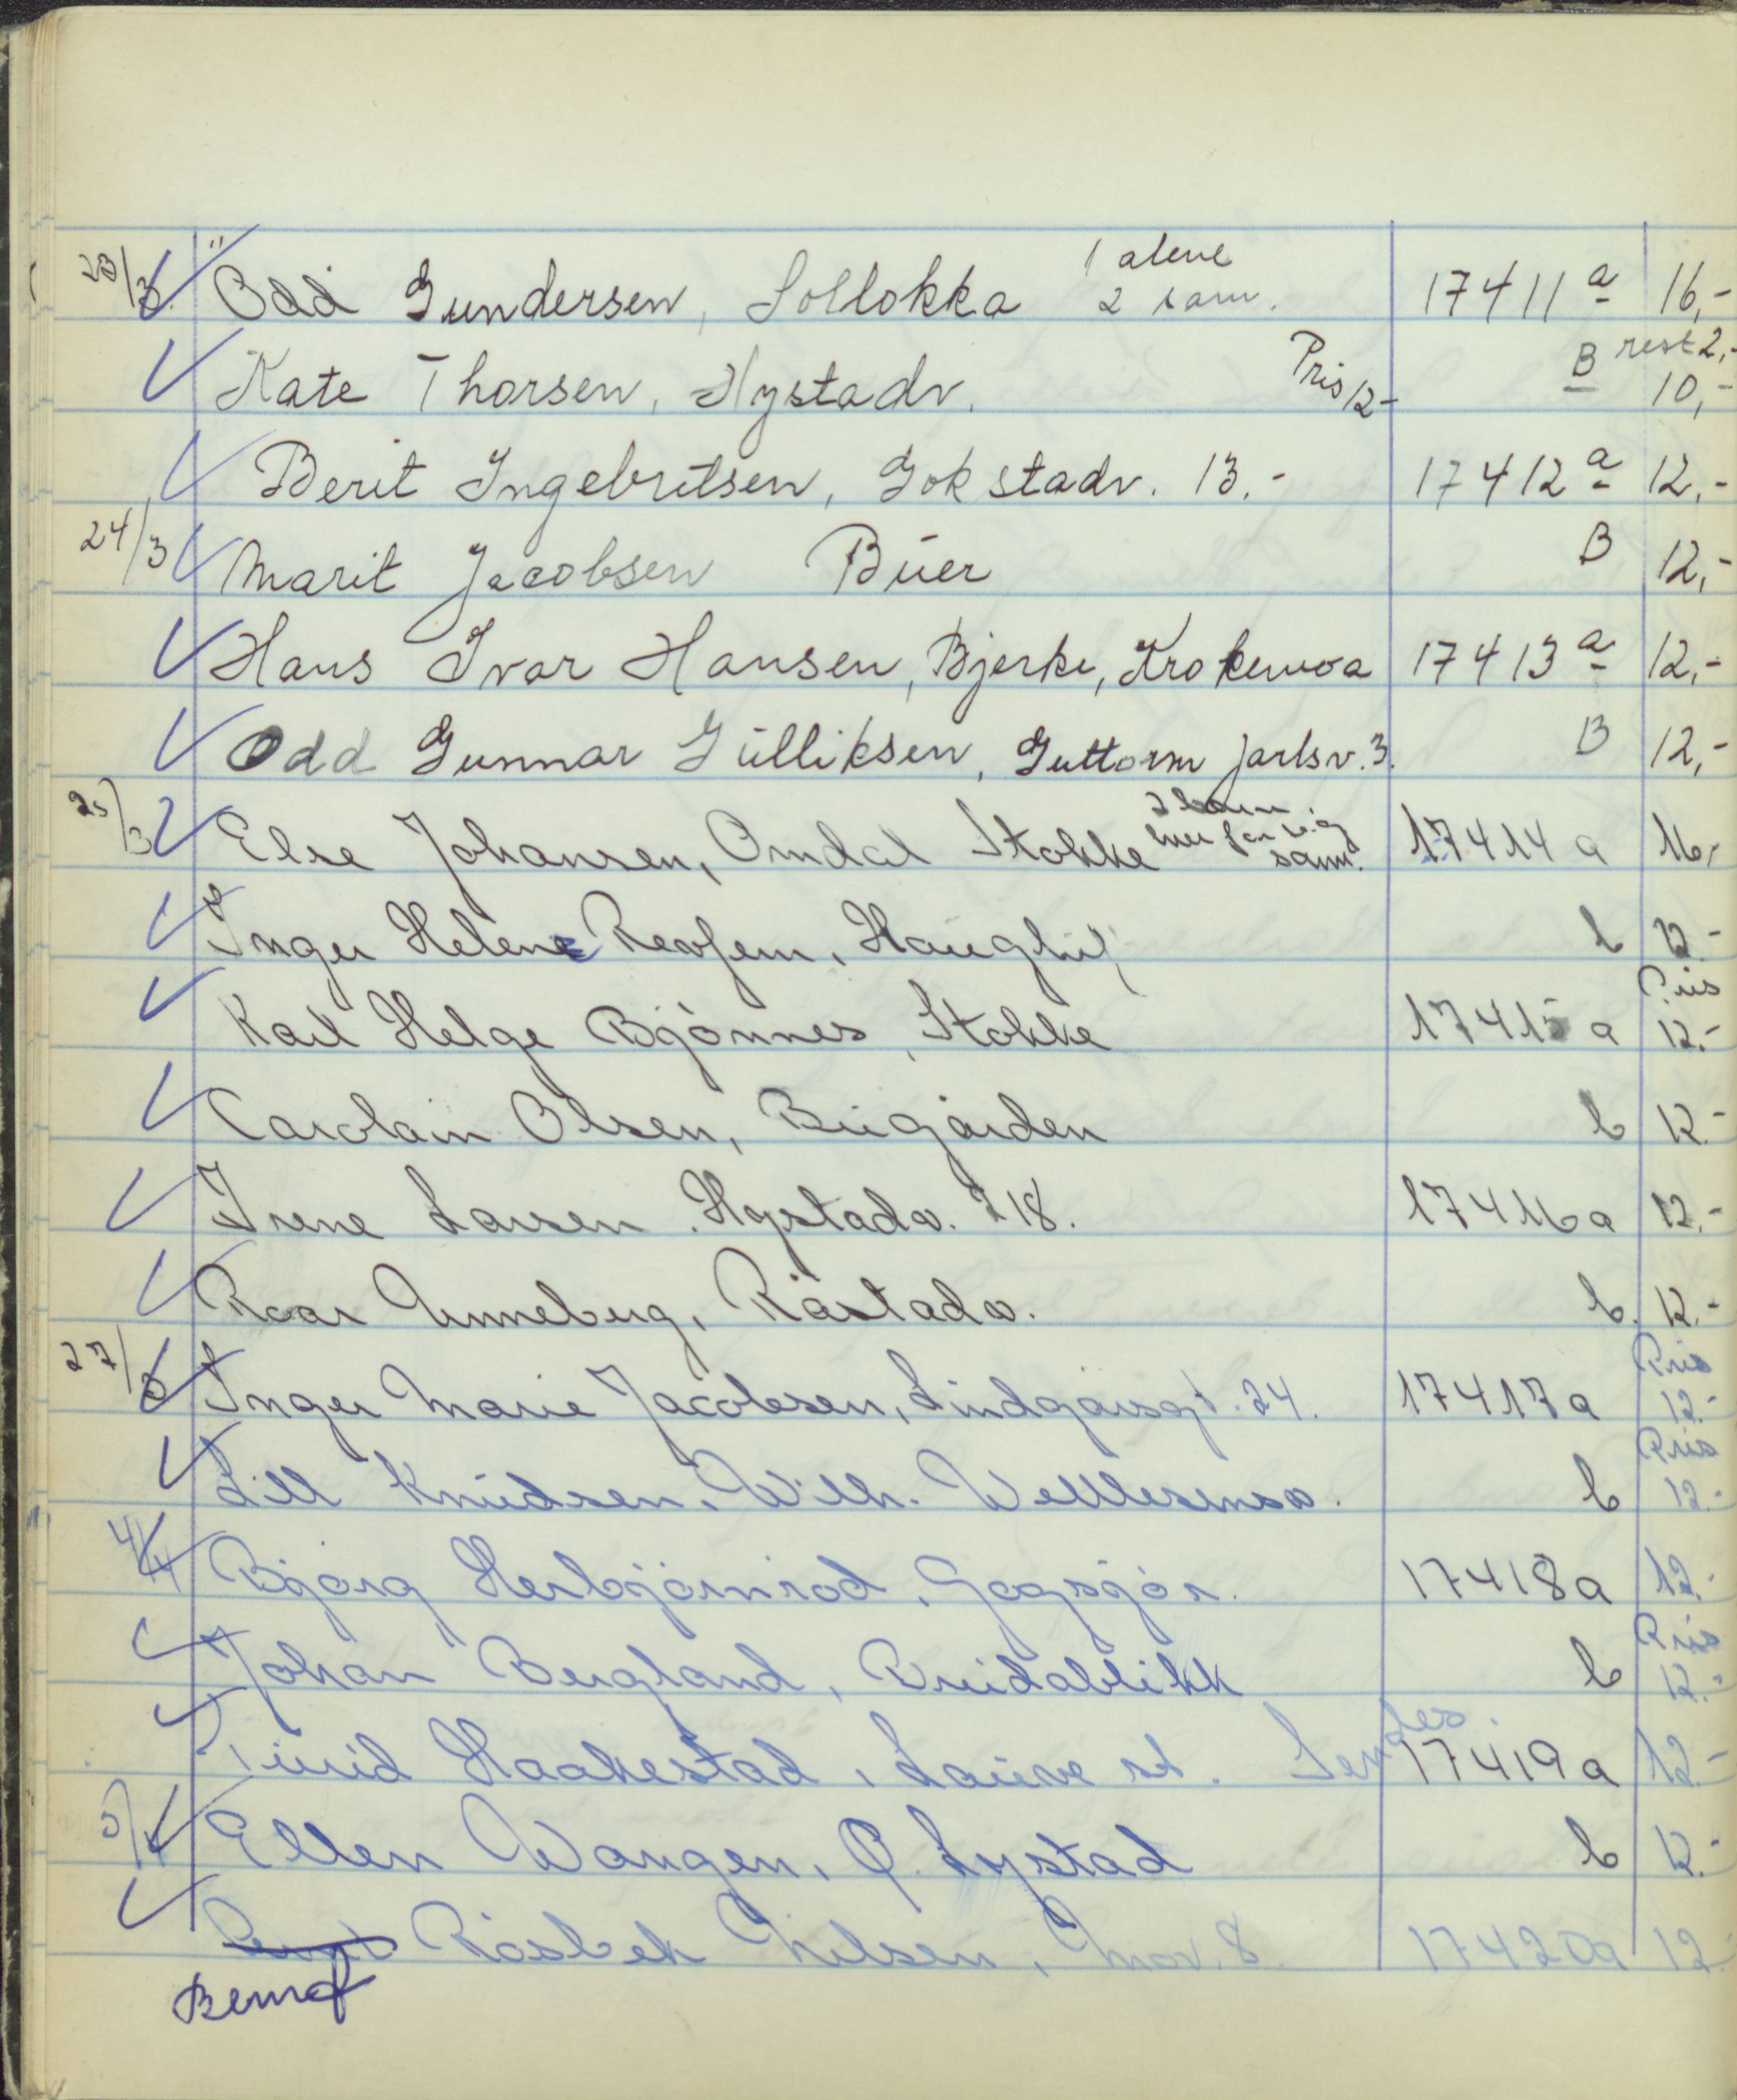 23/3 Odd Gundersen, Sollokka 1 alene 2 sam. 17411 a 16,-
Kate Thorsen, Nystadv. Pris 12- B rest 2,- 10,-
Berit Ingebritsen, Gokstadv. 13.- 17412 a 12,-
24/3 Marit Jacobsen Büer B 12,-
Hans Ivar Hansen, Bjerke, Krokemoa 17413 a 12,-
Odd Gunnar Gülliksen, Guttorm Jarlsv. 3. B 12,-
25/3 Else Johansen, Omdal Stokke 2 barn hver for seig samm. 17414 a 16,-
Inger Helene 12.- b
Karl Helge Bjønnes, Stokke 17415 a Pris 12.-
Carolain Olsen, Bugården b 12.-
Irene Larsen. Hystadv. 18. 17416 a 12.-
Roar Unneberg, Råstadv. b. 12.-
27/3 Inger Marie Jacobsen, Lindgårsgt. 24. 17417 a Pris 12.-
Lill Knudsen, Wilh. b Pris 12.-
4/4 Bjørg Herbjørnrød, Gogsjør. 17418 a 12.-
Johan Bergland, Breidablikk b Pris 12.-
Turid Haakestad, Lauve st. Sendes. 17419 a 12.-
5/4 Ellen Wangen, Ø. Lystad b 12.-
Røsbek Nilsen, Mov. 8. 17420a 12.
Bernt